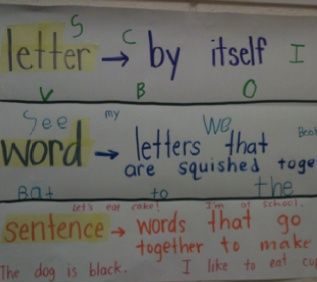 S
letter → C by itself I
V B O
See my We
word → letters that
are squished
Bat to the
Let's eat cake! I'm at school.
sentence → words that go
together to make
The dog is black. I like to eat